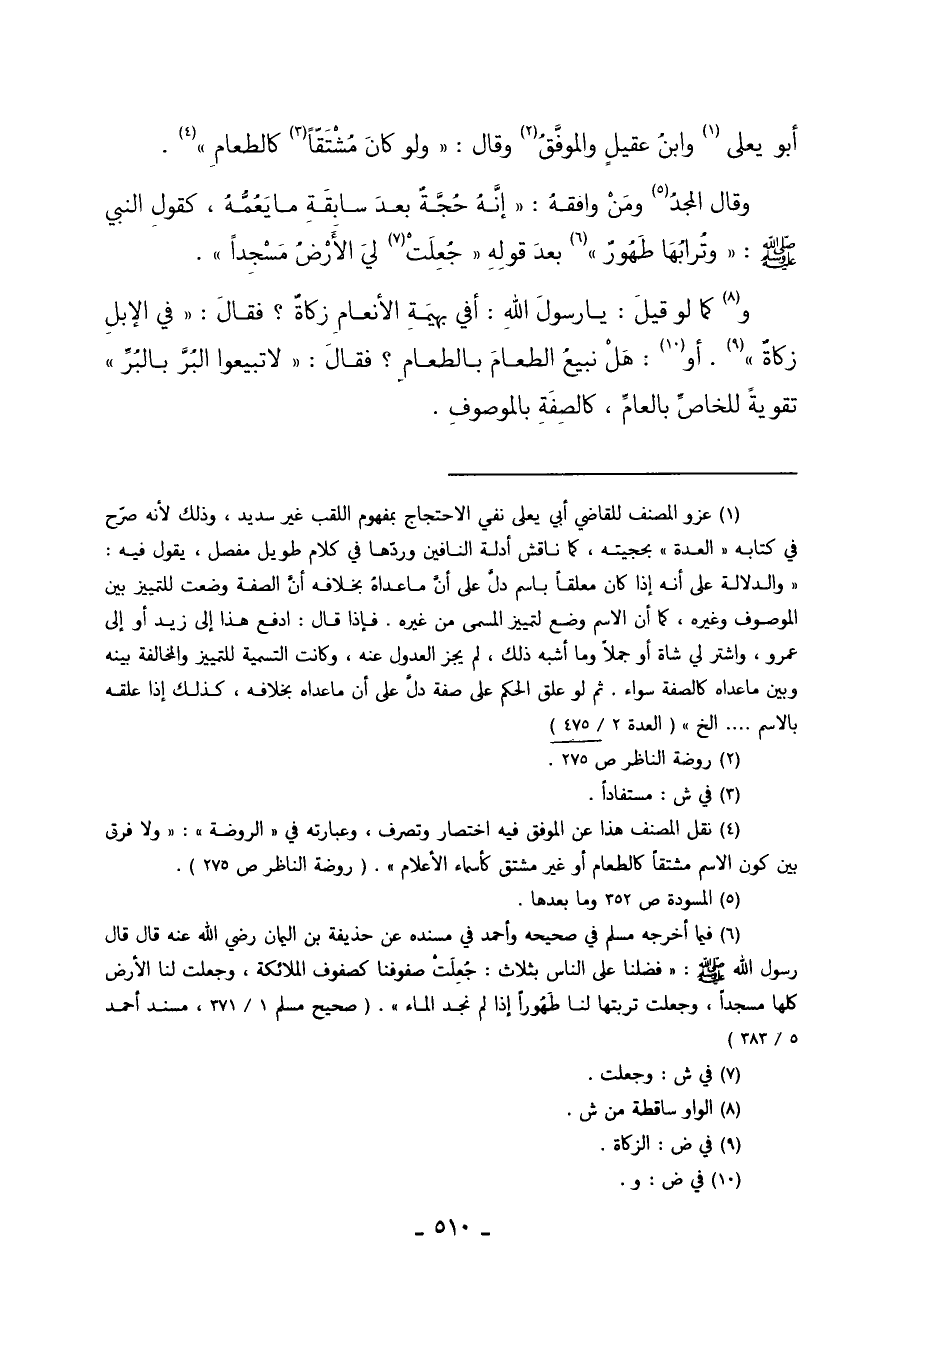 أبو يعلى (١) وابنُ عقيلٍ والموفَّقُ(٢) وقال : « ولو كانَ مُشْتَقَّاً(٣) كالطعامِ »(٤) .
وقال المجدُ(٥) ومَنْ وافقـهُ : « إنَّـهُ حُجَّـةٌ بعـدَ سـابِقَـةِ مـايَعُمُّـهُ ، كقولِ النبي
ﷺ : « وتُرابُهَا طَهُورٌ »(٦) بعدَ قولِهِ « جُعِلَتْ(٧) ليَ الأَرْضُ مَسْجِداً » .
و(٨) كما لو قيلَ : يـارسولَ اللهِ : أفي بهيمَـةِ الأنعـامِ زكاةٌ ؟ فقـالَ : « في الإبلِ
زكاةٌ »(٩) . أو(١٠) : هَلْ نبيعُ الطعـامَ بـالطعـامِ ؟ فقـالَ : « لاتبيعوا البُرَّ بـالبُرِّ »
تقويةً للخاصِّ بالعامِّ ، كالصفَةِ بالموصوفِ .
(١) عزو المصنف للقاضي أبي يعلى نفي الاحتجاج بمفهوم اللقب غير سديد ، وذلك لأنه صرّح
في كتابه « العدة » بحجيته ، كما ناقش أدلة النافين وردّها في كلام طويل مفصل ، يقول فيه :
« والدلالة على أنه إذا كان معلقاً باسم دلّ على أنَّ ماعداهُ بخلافه أنَّ الصفة وضعت للتمييز بين
الموصوف وغيره ، كما أن الاسم وضع لتمييز المسمى من غيره . فإذا قال : ادفع هذا إلى زيد أو إلى
عمرو ، واشتر لي شاة أو جملاً وما أشبه ذلك ، لم يجز العدول عنه ، وكانت التسمية للتمييز والمخالفة بينه
وبين ماعداه كالصفة سواء . ثم لو علق الحكم على صفة دلَّ على أن ماعداه بخلافه ، كذلك إذا علقه
بالاسم .... الخ » ( العدة ٢ / ٤٧٥ )
(٢) روضة الناظر ص ٢٧٥ .
(٣) في ش : مستفاداً .
(٤) نقل المصنف هذا عن الموفق فيه اختصار وتصرف ، وعبارته في « الروضة » : « ولا فرق
بين كون الاسم مشتقاً كالطعام أو غير مشتق كأسماء الأعلام » . ( روضة الناظر ص ٢٧٥ ) .
(٥) المسودة ص ٣٥٢ وما بعدها .
(٦) فيما أخرجه مسلم في صحيحه وأحمد في مسنده عن حذيفة بن اليمان رضي الله عنه قال قال
رسول الله ﷺ : « فضلنا على الناس بثلاث : جُعلَتْ صفوفنا كصفوف الملائكة ، وجعلت لنا الأرض
كلها مسجداً ، وجعلت تربتها لنا طَهُوراً إذا لم نجد الماء » . ( صحيح مسلم ١ / ٣٧١ ، مسند أحمد
٥ / ٣٨٣ )
(٧) في ش : وجعلت .
(٨) الواو ساقطة من ش .
(٩) في ض : الزكاة .
(١٠) في ض : و .
ـ ٥١٠ ـ